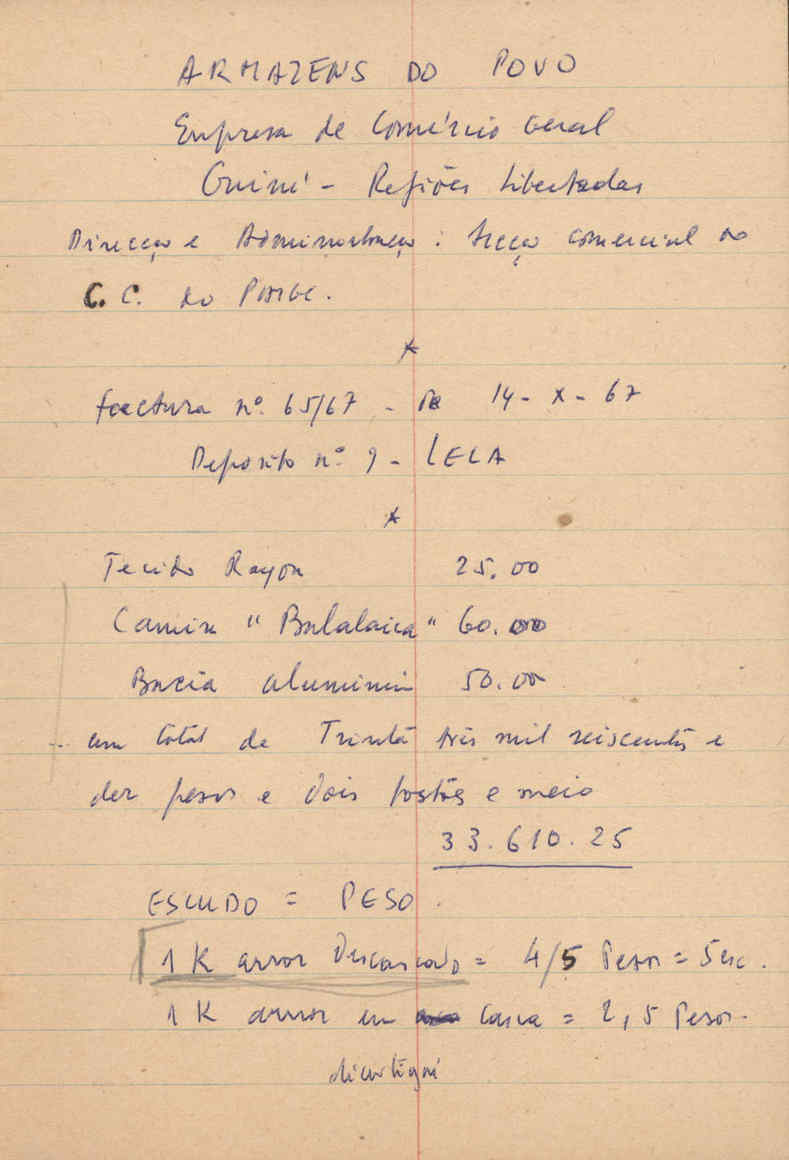 ARMAZENS DO POVO
Empresa de Comércio Geral
Guiné - Regiões Libertadas
Direcção e Administração: Secção comercial do
C.C. do PAIGC.
*
factura nº. 65/67 - de 14-X-67
Deposito nº 9 - LELA
*
Tecido Rayon 25.00
Camisa "Balalaica" 60.00
Bacia aluminio 50.00
um total de Trinta três mil seiscentos e
dez pesos e dois tostões e meio
33.610.25
ESCUDO = PESO.
1 K arroz Descascado = 4/5 Pesos = 5 esc.
1 K arroz em casca = 2,5 Pesos.